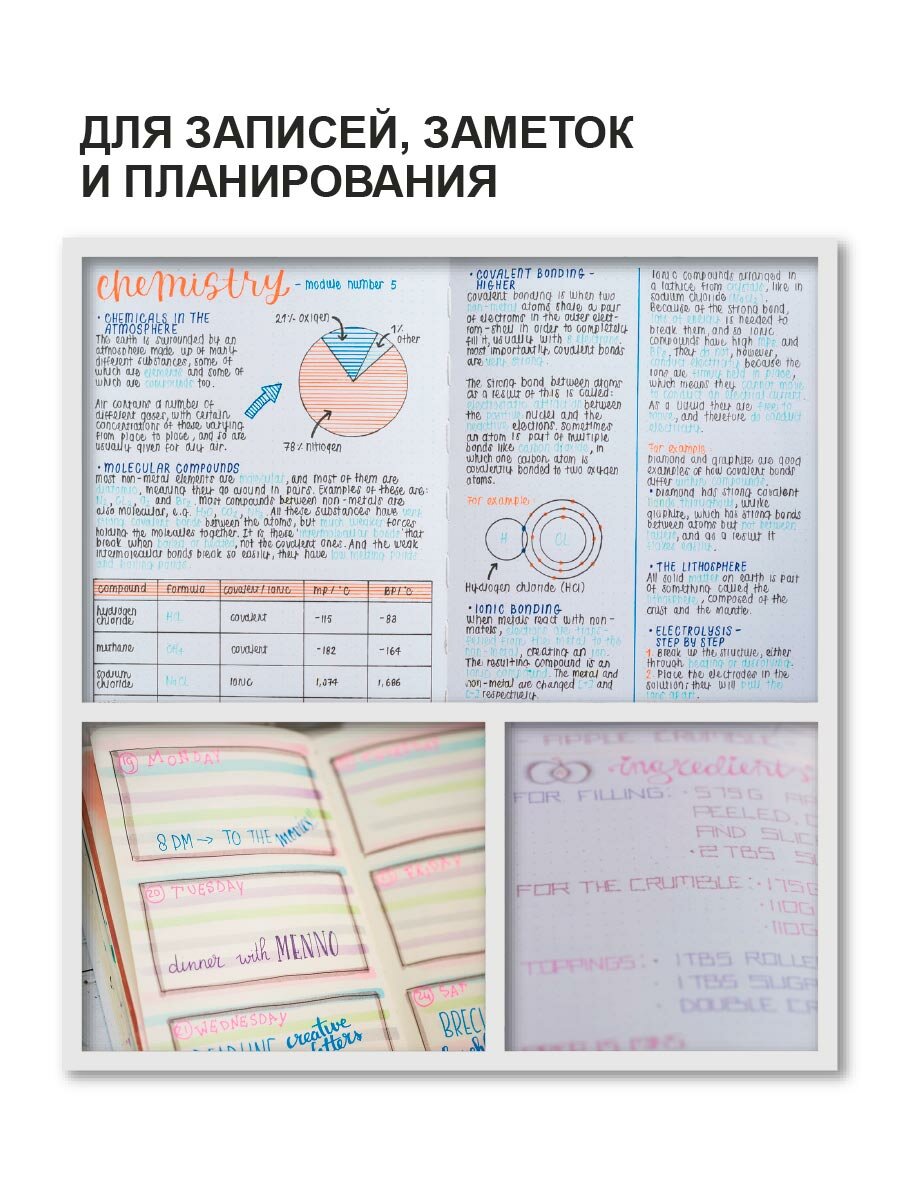 ДЛЯ ЗАПИСЕЙ, ЗАМЕТОК
И ПЛАНИРОВАНИЯ
chemistry - module number 5
• CHEMICALS IN THE
ATMOSPHERE
The earth is surrounded by an
atmosphere made up of many
different substances, some of
which are elements and some of
which are compounds too.
Air contains a number of
different gases, with certain
concentrations of these varying
from place to place, and so are
usually given for dry air.
21% oxigen
1%
other
78% nitrogen
• MOLECULAR COMPOUNDS
Most non-metal elements are molecular, and most of them are
diatomic, meaning they go around in pairs. Examples of these are:
N₂, Cl₂, O₂ and Br₂. Most compounds between non-metals are
also molecular, e.g. H₂O, CO₂, NH₃. All these substances have very
strong covalent bonds between the atoms, but much weaker forces
holding the molecules together. It is these 'intermolecular bonds' that
break when boiling or heated, not the covalent ones. And the weak
intermolecular bonds break so easily, they have low melting points
and boiling points.
compound formula covalent/ionic MP/°C BP/°C
hydrogen
chloride HCl covalent -115 -83
methane CH₄ covalent -182 -164
sodium
chloride NaCl ionic 1,074 1,686
• COVALENT BONDING -
HIGHER
Covalent bonding is when two
non-metal atoms share a pair
of electrons in the outer elect-
rom-shell in order to completely
fill it, usually with 8 electrons.
Most importantly, covalent bonds
are very strong.
The strong bond between atoms
as a result of this is called:
electrostatic attraction between
the positive nuclei and the
negative electrons. Sometimes
an atom is part of multiple
bonds like carbon dioxide, in
which one carbon atom is
covalently bonded to two oxygen
atoms.
For example:
H Cl
Hydrogen chloride (HCl)
• IONIC BONDING
When metals react with non-
metels, electrons are trans-
ferred from the metal to the
non-metal, creating an ion.
The resulting compound is an
ionic compound. The metal and
non-metal are changed and
respectively.
Ionic compounds arranged in
a lattice from crystals, like in
sodium chloride (NaCl).
Because of the strong bond,
lots of energy is needed to
break them, and so ionic
compounds have high MPs and
BPs. They do not, however,
conduct electricity because the
ions are firmly held in place,
which means they cannot move
to conduct an electrical current.
As a liquid they are free to
move, and therefore do conduct
electricity.
For example:
Diamond and graphite are good
examples of how covalent bonds
differ within compounds.
• Diamond has strong covalent
bonds throughout, unlike
graphite, which has strong bonds
between atoms but not between
layers, and as a result it
flakes easily.
• THE LITHOSPHERE
All solid matter on earth is part
of something called the
lithosphere, composed of the
crust and the mantle.
• ELECTROLYSIS -
STEP BY STEP
1. Break up the structure, either
through heating or dissolving.
2. Place the electrodes in the
solution: they will pull the
ions apart.
19 MONDAY
8 PM → TO THE movies!
20 TUESDAY
dinner with MENNO
21 WEDNESDAY
DEADLINE creative
letters
FRIDAY
24 SAT
- APPLE CRUMBLE -
• ingredients
FOR FILLING: • 575G
PEELED,
AND SLIC
• 2 TBS
FOR THE CRUMBLE: • 175G
• 110G
• 110G
TOPPINGS: • 1TBS ROLLE
• 1 TBS SUGA
• DOUBLE CR